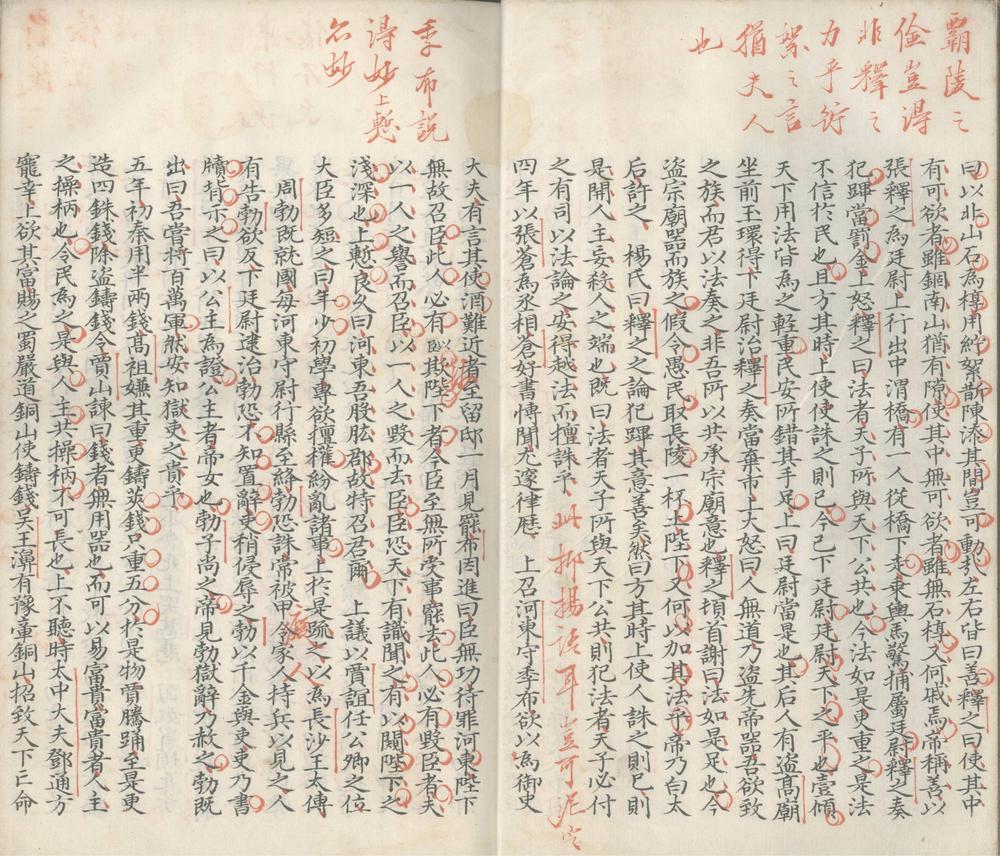 霸陵之
儉豈得
非釋之
力乎衍
絮之言
猶夫人
也
曰以北山石為椁用紵絮斮陳漆其間豈可動㦲左右皆曰善釋之曰使其中
有可欲者雖錮南山猶有隙使其中無可欲者雖無石椁又何戚焉帝稱善以
張釋之為廷尉上行出中渭橋有一人從橋下走乗輿馬驚捕屬廷尉釋之奏
犯蹕當罰金上怒釋之曰法者天子所與天下公共也今法如是更重之是法
不信於民也且方其時上使使誅之則已今已下廷尉廷尉天下之平也壹傾
天下用法皆為之輕重民安所錯其手足上曰廷尉當是也其后人有盜髙廟
坐前玉環得下廷尉治釋之奏當棄市上大怒曰人無道乃盜先帝器吾欲致
之族而君以法奏之非吾所以共承宗廟意也釋之頓首謝曰法如是足也今
盜宗廟器而族之假令愚民取長陵一抔土陛下又何以加其法乎帝乃白太
后許之 楊氏曰釋之之論犯蹕其意善矣然曰方其時上使人誅之則已則
是開人主妄殺人之端也既曰法者天子所與天下公共則犯法者天子必付
之有司以法論之安得越法而擅誅乎 此抑揚語耳豈可泥定
四年以張蒼為丞相蒼好書愽聞尤邃律歴 上召河東守季布欲以為御史
季布説
得妙上慙
亦妙
大夫有言其使酒難近者至留邸一月見罷布因進曰臣無功待罪河東陛下
無故召臣此人必有以欺陛下者今臣至無所受事罷去此人必有毀臣者夫
以一人之譽而召臣以一人之毀而去臣臣恐天下有識聞之有以闚陛下之
淺深也上慙良久曰河東吾股肱郡故特召君爾 上議以賈誼任公卿之位
大臣多短之曰年少初學專欲擅權紛亂諸事上於是疏之以為長沙王太傅
周勃既就國每河東守尉行縣至絳勃恐誅常被甲令家人持兵以見之人
有告勃欲反下廷尉逮治勃恐不知置辭吏稍侵辱之勃以千金與吏吏乃書
牘背示之曰以公主為證公主者帝女也勃子尚之帝見勃獄辭乃赦之勃既
出曰吾嘗將百萬軍然安知獄吏之貴乎
五年初秦用半兩錢髙祖嫌其重更鑄莢錢只重五分於是物賈騰踊至是更
造四銖錢除盜鑄錢令賈山諫曰錢者無用器也而可以易富貴富貴者人主
之操柄也令民為之是與人主共操柄不可長也上不聽時太中大夫鄧通方
寵幸上欲其富賜之蜀嚴道銅山使鑄錢吳王濞有豫章銅山招致天下亡命